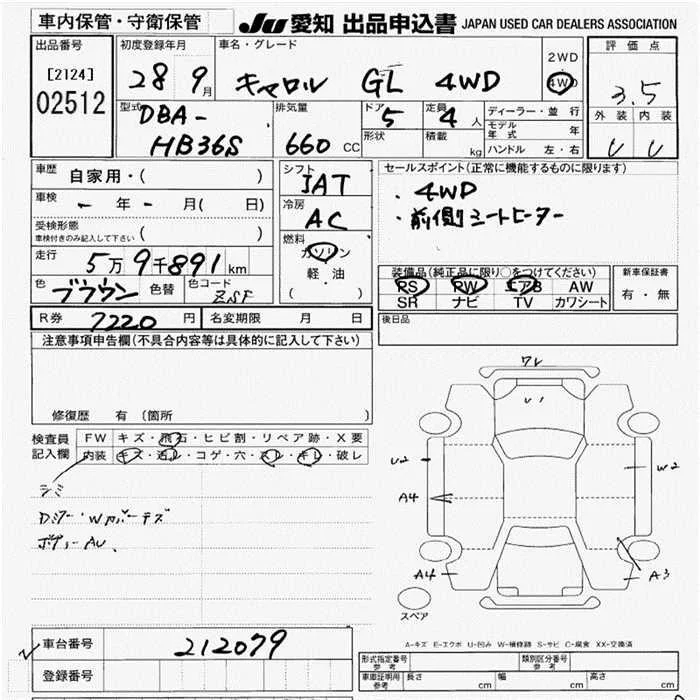 車内保管・守衛保管
JU 愛知 出品申込書 JAPAN USED CAR DEALERS ASSOCIATION
出品番号
[2124]
02512
初度登録年月
28 9月
車名・グレード
キャロル GL 4WD
2WD
4WD
評価点
3.5
外装 内装
型式
DBA-
HB36S
排気量
660 CC
ドア
5
定員
4 人
形状
積載 kg
ディーラー・並行
モデル年式 年
ハンドル 左・右
車歴
自家用・( )
車検
年 月( 日)
受検形態
車検付きのみ記入して下さい ( )
走行
5万9千891km
色
ブラウン
色替
色コード
ZSF
シフト
IAT
冷房
AC
燃料
ガソリン
軽・油
( )
セールスポイント(正常に機能するものに限ります)
・4WD
・前側シートヒーター
装備品(純正品に限り○をつけてください)
PS PW エアB AW
SR ナビ TV カワシート
新車保証書
有・無
R券 7220 円
名変期限 月 日
後日品
注意事項申告欄(不具合内容等は具体的に記入して下さい)
修復歴 有 (箇所 )
検査員
記入欄
FW キズ・飛石・ヒビ割・リペア跡・X要
内装 キズ・汚レ・コゲ・穴・スレ・キレ・破レ
シミ
ボデーAU、
ワレ
U1
U2
W2
A4
A4
A3
スペア
A-キズ E-エクボ U-凹み W-補修跡 S-サビ C-腐食 XX-交換済
車台番号 212079
登録番号
形式指定番号
参考
類別区分番号
参考
車庫証明用
参考
長さ cm 幅 cm 高さ cm